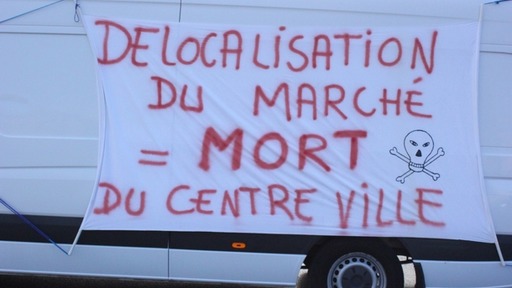 DELOCALISATION
DU MARCHÉ
= MORT
DU CENTRE VILLE